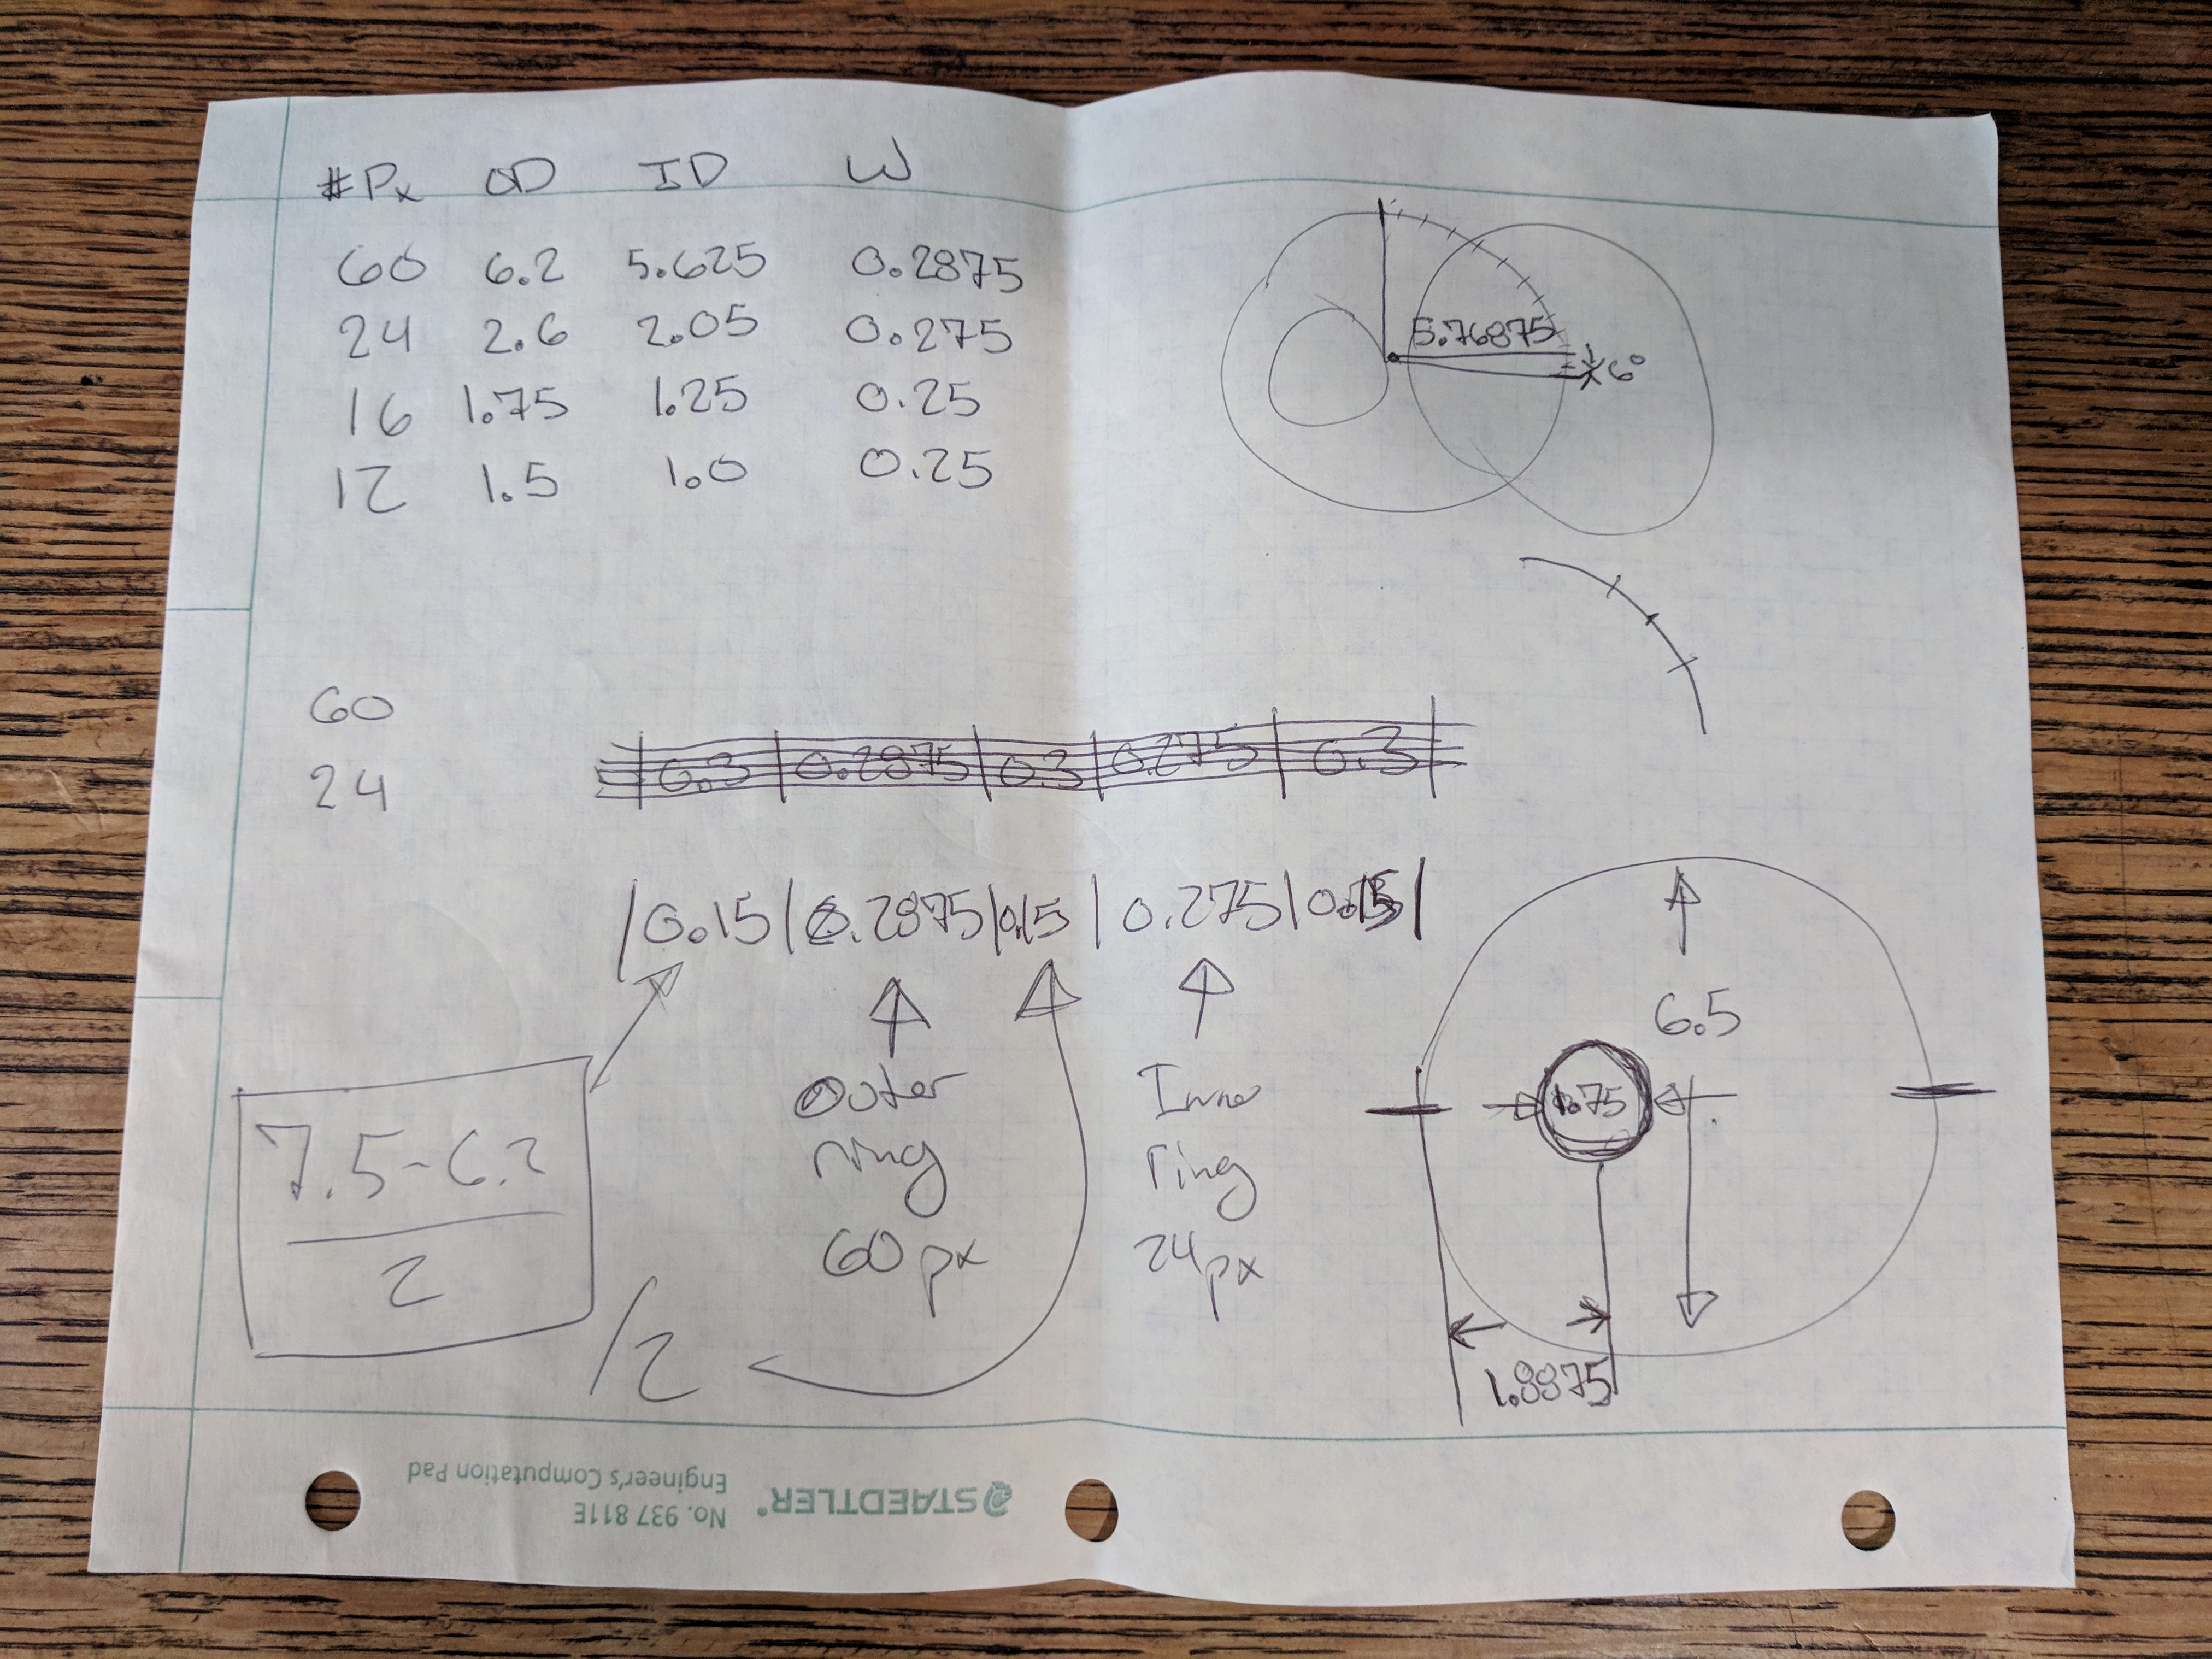 #Px OD ID W
60 6.2 5.625 0.2875
24 2.6 2.05 0.275
16 1.75 1.25 0.25
12 1.5 1.0 0.25
5.76875
6°
60
24
0.3 0.2875 0.3 0.275 0.3
|0.15|0.2875|0.15|0.275|0.15|
Outer
ring
60px
Inner
ring
24px
7.5-6.2
2
/2
6.5
1.75
1.8875
STAEDTLER®
No. 937 811E
Engineer's Computation Pad